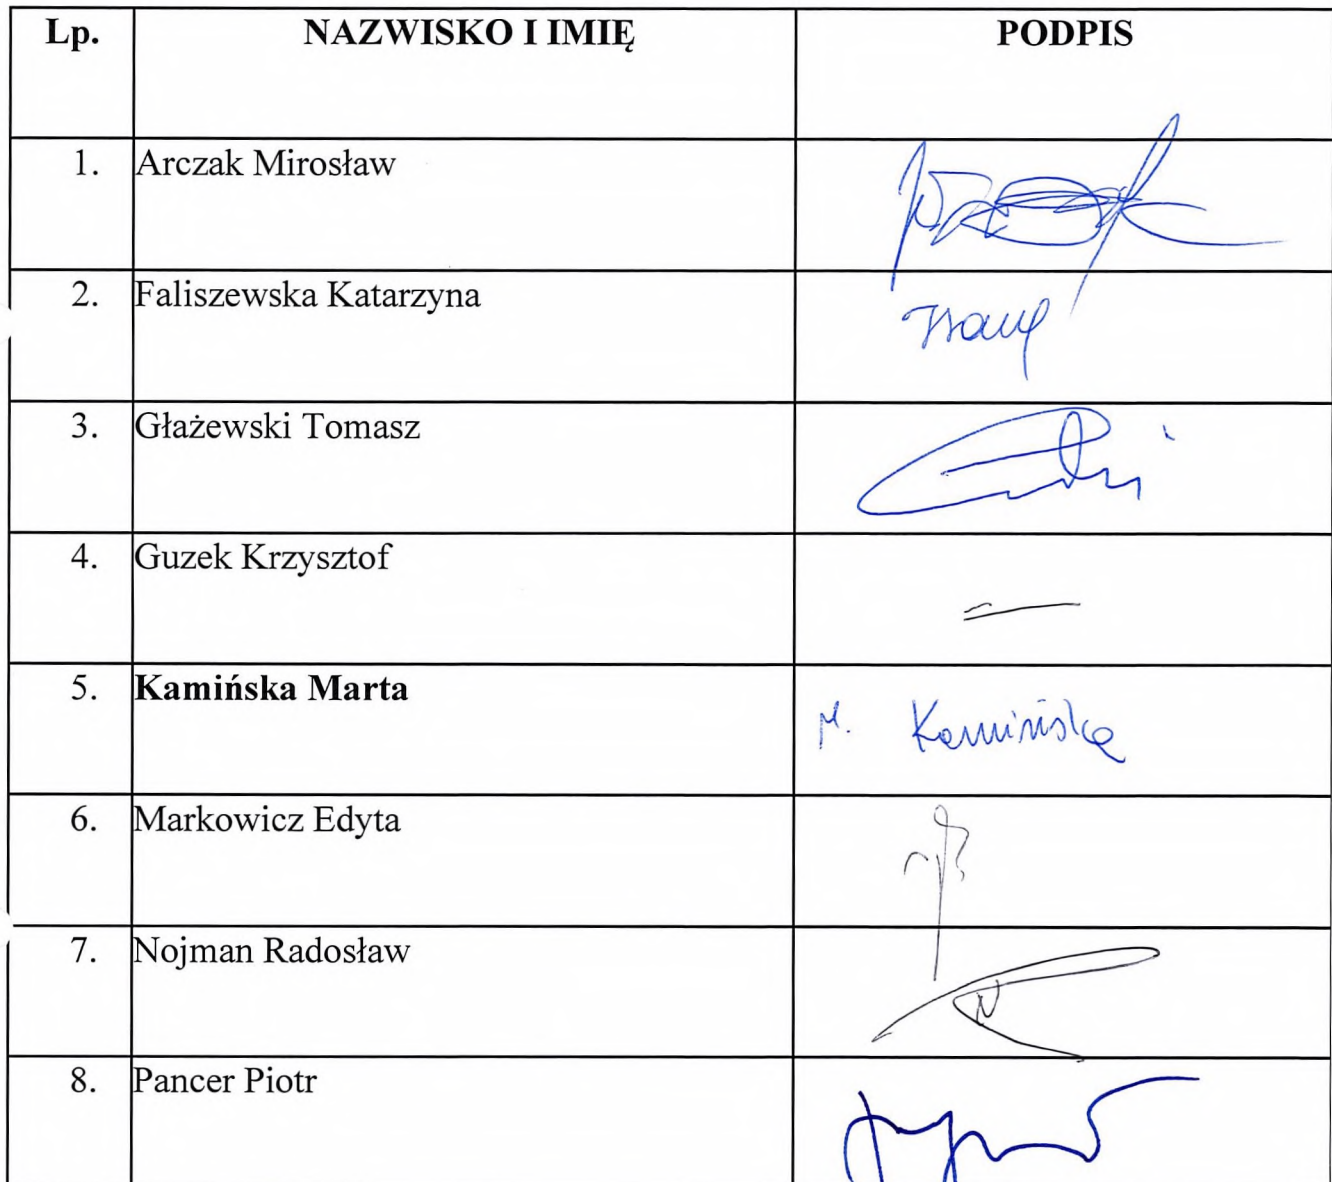 Lp. NAZWISKO I IMIĘ PODPIS
1. Arczak Mirosław
2. Faliszewska Katarzyna
3. Głażewski Tomasz
4. Guzek Krzysztof
5. Kamińska Marta M. Kamińska
6. Markowicz Edyta
7. Nojman Radosław
8. Pancer Piotr